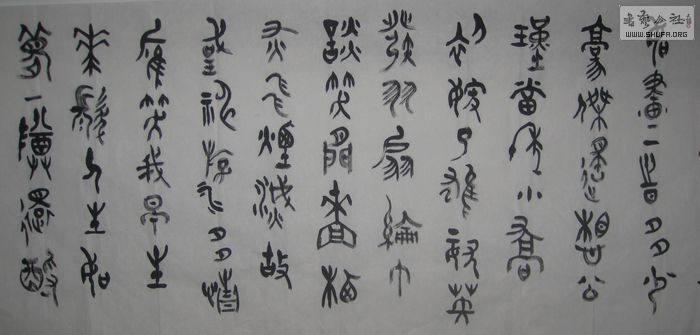 畫一時多少
豪傑遙想公
瑾當年小喬
初嫁了雄姿英
發羽扇綸巾
談笑間檣櫓
灰飛煙滅故
國神游多情
應笑我早生
華髮人生如
夢一樽還酹
书艺公社
WWW.SHUFA.ORG